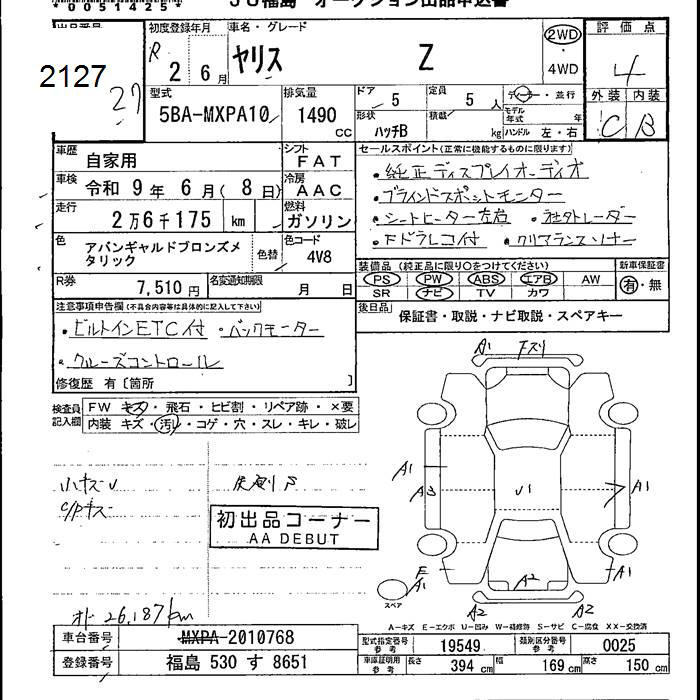 *00051425*
JU福島 オークション出品申込書
出品番号
2127
27
初度登録年月
R 2 6月
車名・グレード
ヤリス Z
2WD
・
4WD
評価点
4
外装 内装
C B
型式
5BA-MXPA10
排気量
1490
CC
ドア
5
定員
5 人
ディーラー・並行
形状
ハッチB
積載
kg
モデル年式
年
ハンドル 左・右
車歴
自家用
シフト
FAT
車検
令和 9年 6月( 8日)
冷房
AAC
走行
2万6千175 km
燃料
ガソリン
色
アバンギャルドブロンズメタリック
色替
色コード
4V8
R券
7,510円
名変通知期限
月 日
セールスポイント(正常に機能するものに限ります)
・純正ディスプレイオーディオ
・ブラインドスポットモニター
・シートヒーター左右 ・社外レーダー
・Fドラレコ付 ・クリアランスソナー
装備品(純正品に限り○をつけてください)
PS PW ABS エアB AW
SR ナビ TV カワ
新車保証書
有・無
後日品
保証書・取説・ナビ取説・スペアキー
注意事項申告欄(不具合内容等は具体的に記入して下さい)
・ビルトインETC付 ・バックモニター
・クルーズコントロール
修復歴 有〔箇所 〕
検査員記入欄
FW キズ・飛石・ヒビ割・リペア跡・×要
内装 キズ・汚レ・コゲ・穴・スレ・キレ・破レ
初出品コーナー
AA DEBUT
A1 Fスリ
A1
A3
U1
A1
F
A1
A2
A1
A2
A2
スペア
A-キズ E-エクボ U-凹み W-補修跡 S-サビ C-腐食 XX-交換済
オド 26,187km
車台番号
MXPA-2010768
登録番号
福島 530 す 8651
型式指定番号
参考
19549
類別区分番号
参考
0025
車庫証明用
参考
長さ 394 cm
幅 169 cm
高さ 150 cm